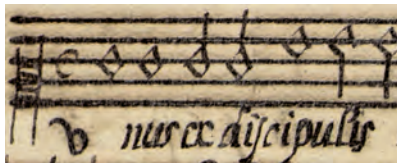 Vnus ex discipulis